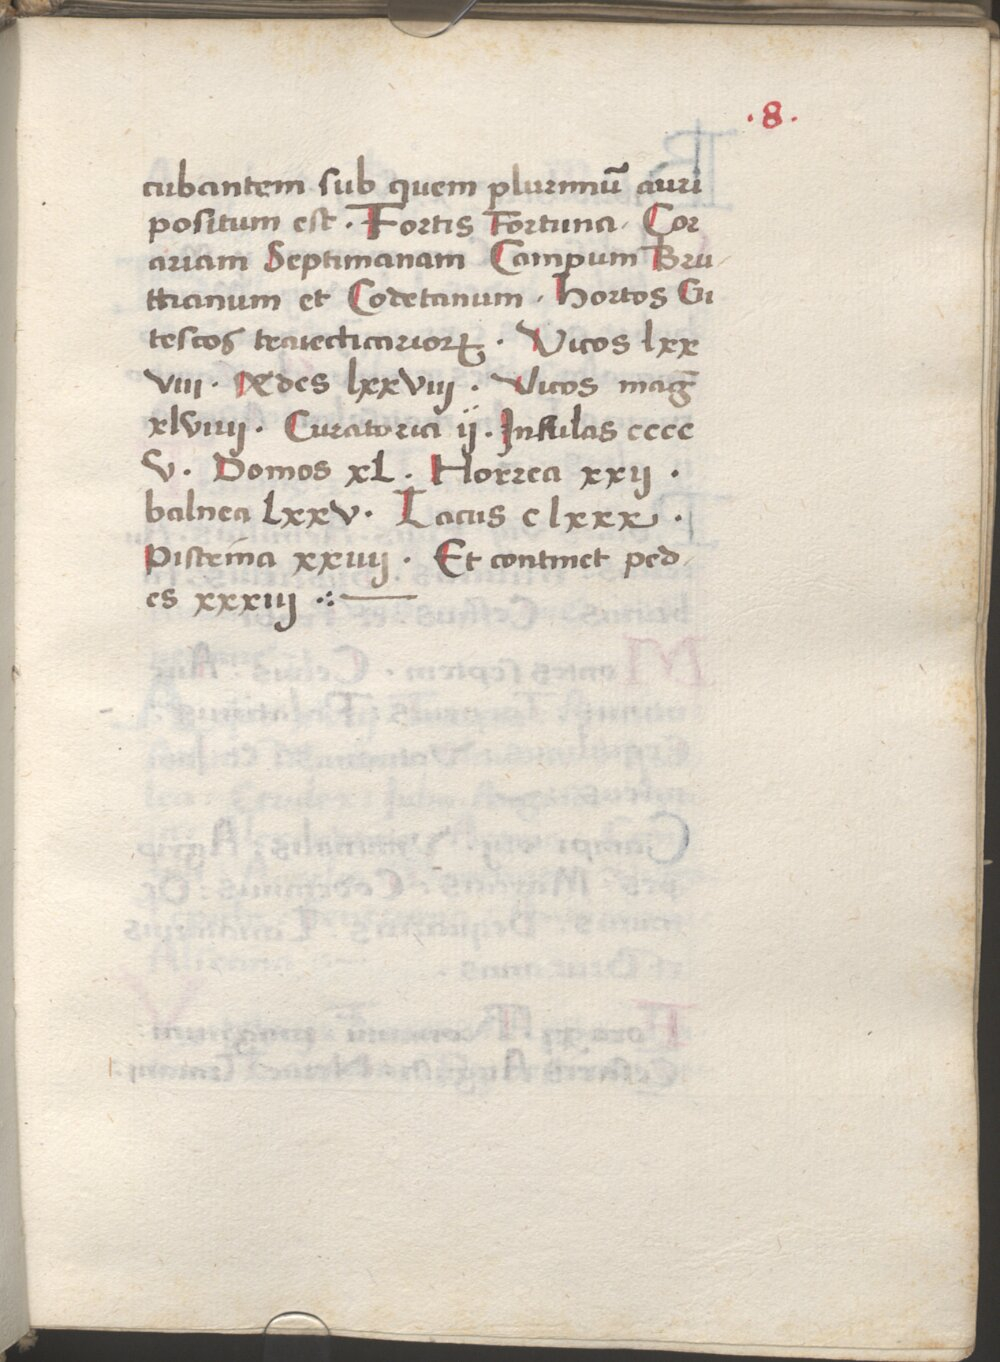 .8.
cubantem sub quem plurimū auri
positum est . Fortis Fortuna . Cor
ariam Septimanam Campum Bru
ttianum et Codetanum . Hortos Gi
tescos traiecticarioꝝ . Vicos lxx
viii . Aedes lxxviij . Vicos mag̅
xlviiij . Curatoria ij . Insulas cccc
v . Domos xL . Horrea xxij .
balnea Lxxv . Lacus c lxxx .
Pistrina xxiiij . Et continet ped
es xxxiij